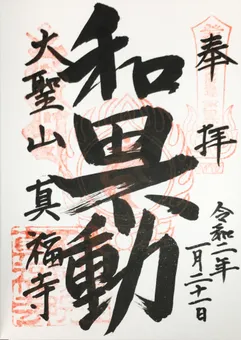 奉拝
令和二年
一月二十一日
和田不動
大聖山 真福寺